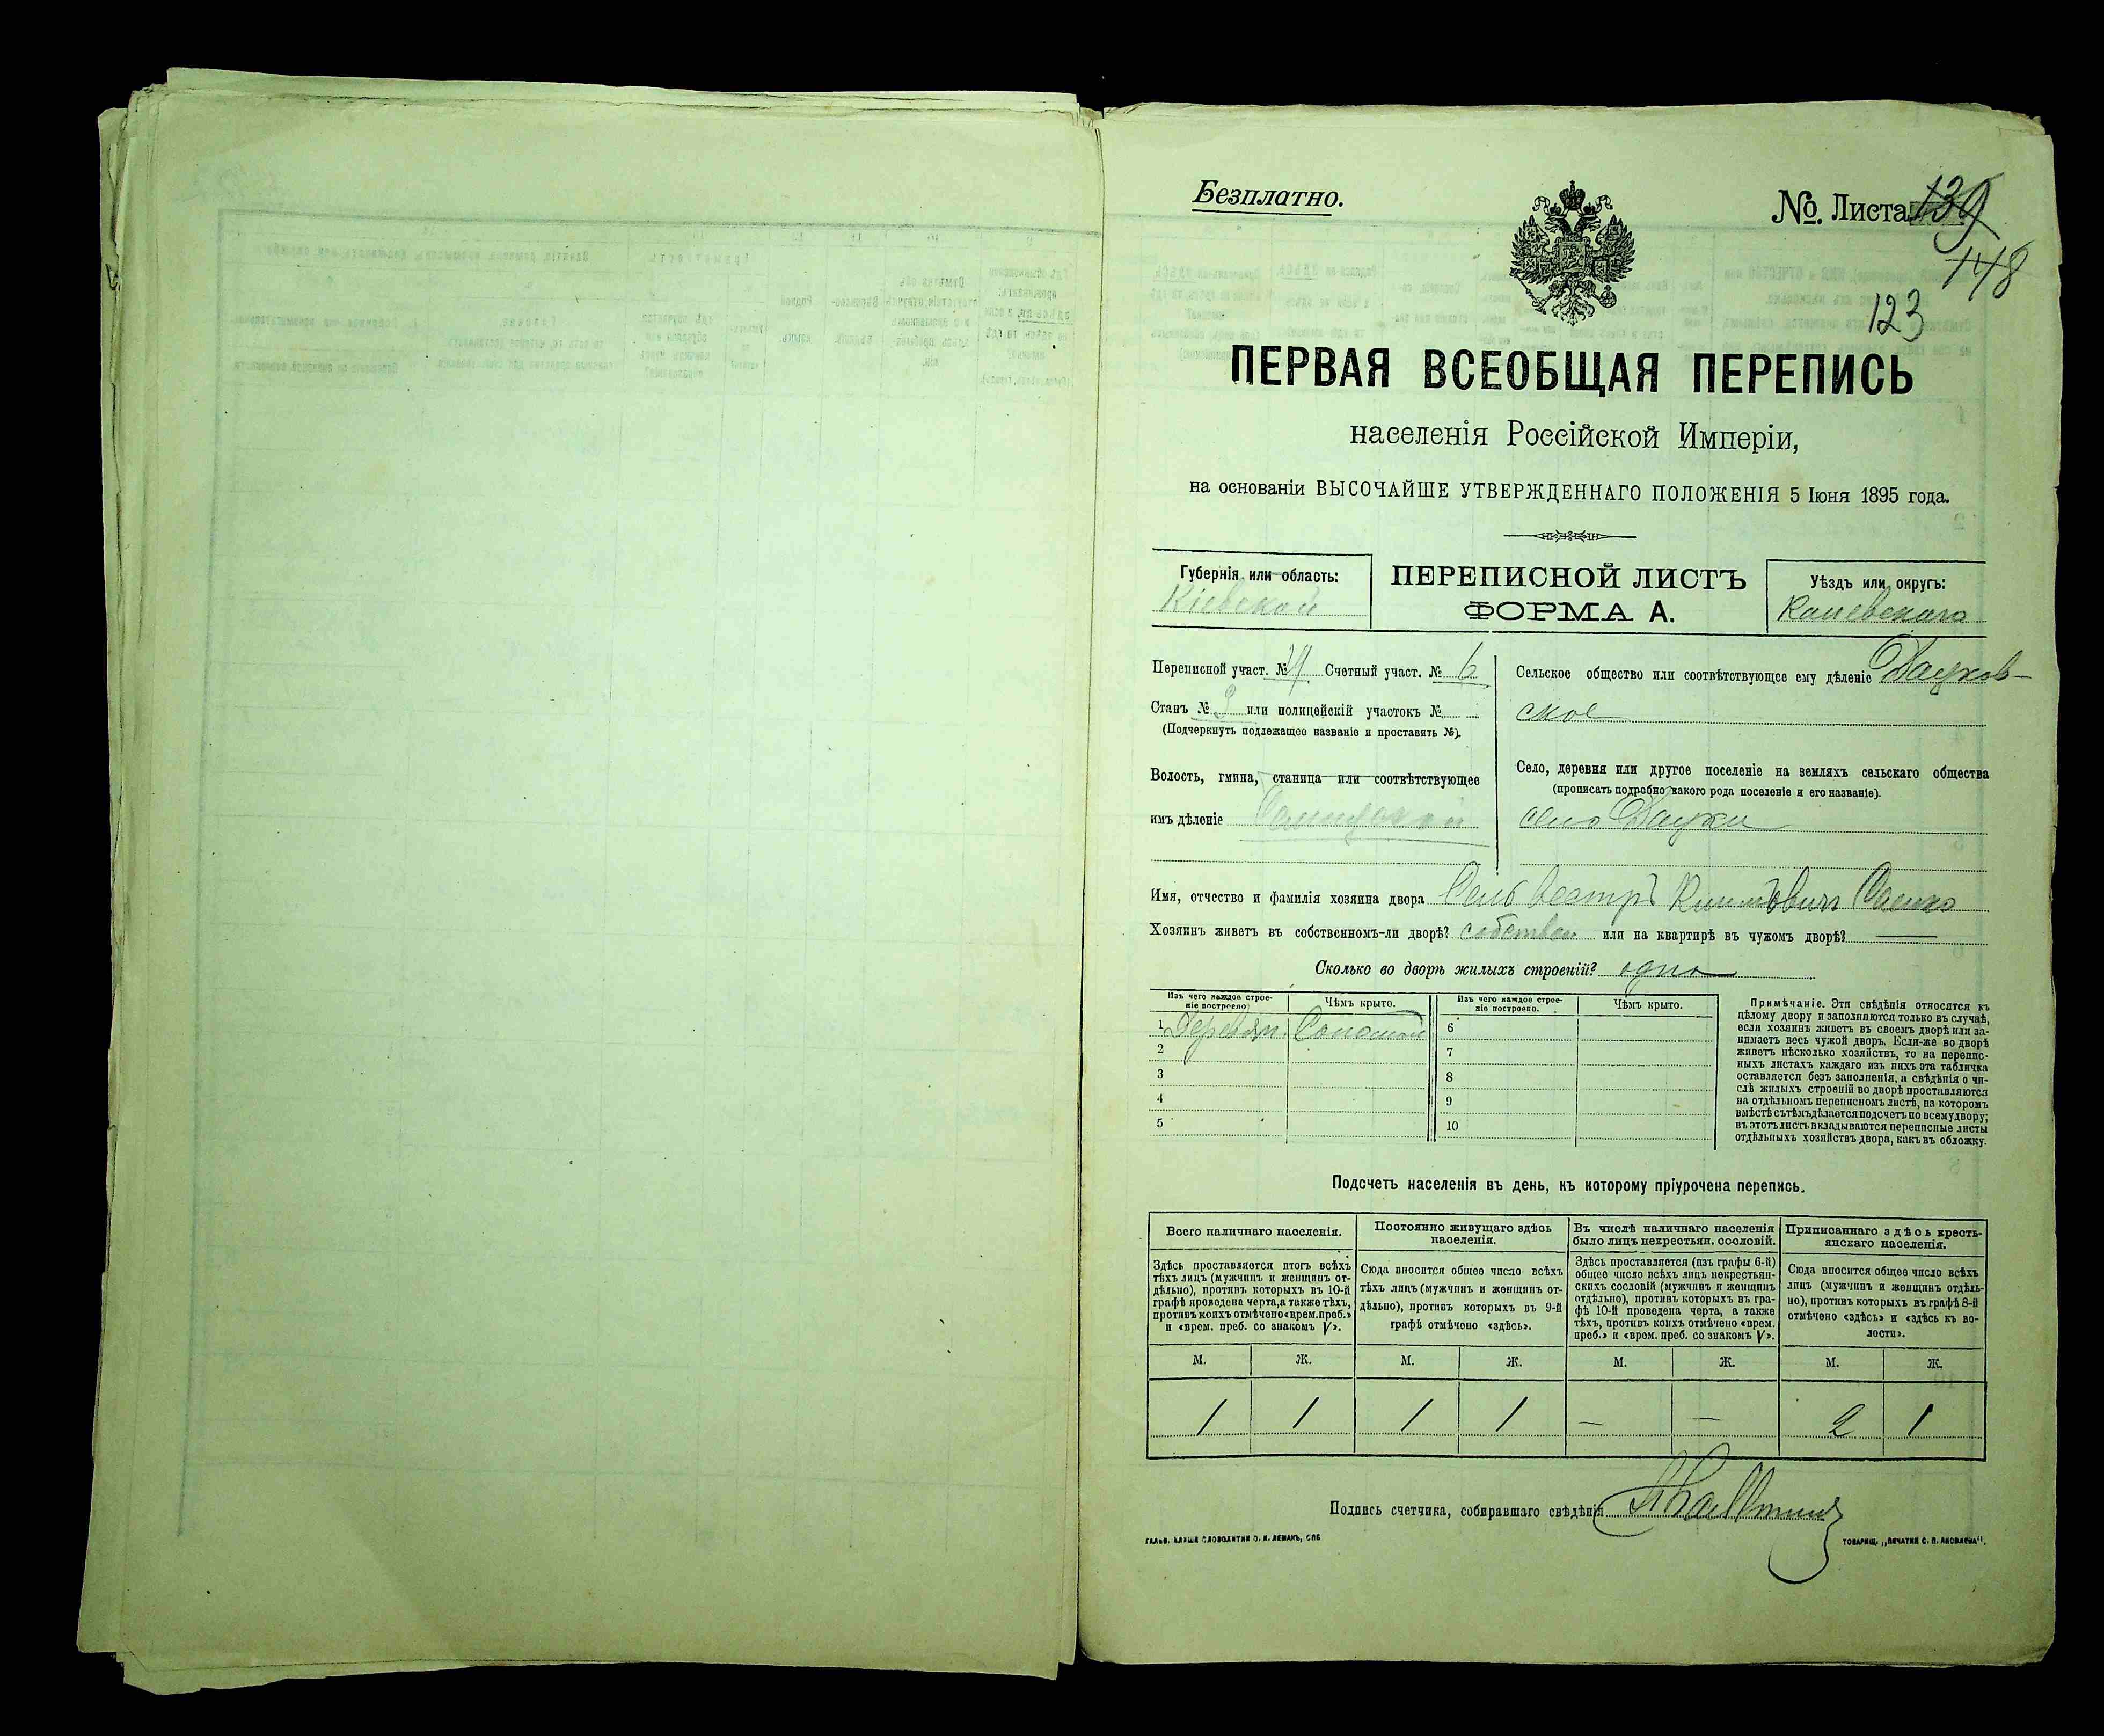 Безплатно.
№. Листа 139
148
123
ПЕРВАЯ ВСЕОБЩАЯ ПЕРЕПИСЬ
населенія Россійской Имперіи,
на основаніи ВЫСОЧАЙШЕ УТВЕРЖДЕННАГО ПОЛОЖЕНІЯ 5 Іюня 1895 года.
Губернія или область:
Кіевской
ПЕРЕПИСНОЙ ЛИСТЪ
ФОРМА А.
Уѣздъ или округъ:
Каневскаго
Переписной участ. № Счетный участ. № 6
Станъ № или полицейскій участокъ №
(Подчеркнуть подлежащее названіе и проставить №).
Волость, гмина, станица или соотвѣтствующее
имъ дѣленіе
Сельское общество или соотвѣтствующее ему дѣленіе Дацков-
ское
Село, деревня или другое поселеніе на земляхъ сельскаго общества
(прописать подробно какого рода поселеніе и его названіе).
село Дацки
Имя, отчество и фамилія хозяина двора Сельвестръ
Хозяинъ живетъ въ собственномъ-ли дворѣ? собствен или на квартирѣ въ чужомъ дворѣ? —
Сколько во дворѣ жилыхъ строеній? одно
Изъ чего каждое строе-
ніе построено
Чѣмъ крыто.
1 Деревян. Соломой
2
3
4
5
Изъ чего каждое строе-
ніе построено.
Чѣмъ крыто.
6
7
8
9
10
Примѣчаніе. Эти свѣдѣнія относятся къ
цѣлому двору и заполняются только въ случаѣ,
если хозяинъ живетъ въ своемъ дворѣ или за-
нимаетъ весь чужой дворъ. Если-же во дворѣ
живетъ нѣсколько хозяйствъ, то на перепис-
ныхъ листахъ каждаго изъ нихъ эта табличка
оставляется безъ заполненія, а свѣдѣнія о чи-
слѣ жилыхъ строеній во дворѣ проставляются
на отдѣльномъ переписномъ листѣ, на которомъ
вмѣстѣ съ тѣмъ дѣлается подсчетъ по всему двору;
въ этотъ листъ вкладываются переписные листы
отдѣльныхъ хозяйствъ двора, какъ въ обложку.
Подсчетъ населенія въ день, къ которому пріурочена перепись.
Всего наличнаго населенія.
Здѣсь проставляется итогъ всѣхъ
тѣхъ лицъ (мужчинъ и женщинъ от-
дѣльно), противъ которыхъ въ 10-й
графѣ проведена черта, а также тѣхъ,
противъ коихъ отмѣчено «врем. преб.»
и «врем. преб. со знакомъ V».
Постоянно живущаго здѣсь
населенія.
Сюда вносится общее число всѣхъ
тѣхъ лицъ (мужчинъ и женщинъ от-
дѣльно), противъ которыхъ въ 9-й
графѣ отмѣчено «здѣсь».
Въ числѣ наличнаго населенія
было лицъ некрестьян. сословій.
Здѣсь проставляется (изъ графы 6-й)
общее число всѣхъ лицъ некрестьян-
скихъ сословій (мужчинъ и женщинъ
отдѣльно), противъ которыхъ въ гра-
фѣ 10-й проведена черта, а также
тѣхъ, противъ коихъ отмѣчено «врем.
преб.» и «врем. преб. со знакомъ V».
Приписаннаго здѣсь кресть-
янскаго населенія.
Сюда вносится общее число всѣхъ
лицъ (мужчинъ и женщинъ отдѣль-
но), противъ которыхъ въ графѣ 8-й
отмѣчено «здѣсь» и «здѣсь къ во-
лости».
М. Ж. М. Ж. М. Ж. М. Ж.
1 1 1 1 — — 2 1
Подпись счетчика, собиравшаго свѣдѣнія
ГАЛЬВ. КЛИШЕ СЛОВОЛИТНИ О. И. ЛЕМАНЪ, СПБ
ТОВАРИЩ. „ПЕЧАТНЯ С. П. ЯКОВЛЕВА".